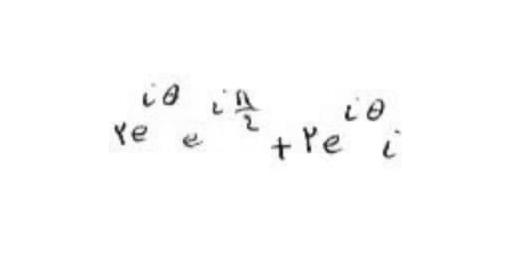 re^{iθ} e^{i\frac{π}{2}} + re^{iθ} i